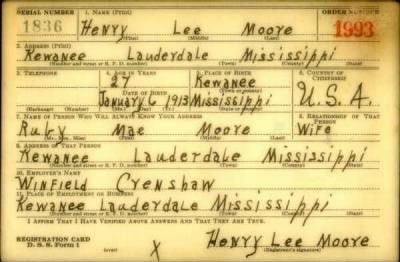 SERIAL NUMBER 1. NAME (Print) ORDER NUMBER
1836 Henry Lee Moore 1993
(First) (Middle) (Last)
2. ADDRESS (Print)
Kewanee Lauderdale Mississippi
(Number and street or R. F. D. number) (Town) (County) (State)
3. TELEPHONE 4. AGE IN YEARS 5. PLACE OF BIRTH 6. COUNTRY OF CITIZENSHIP
27 Kewanee
DATE OF BIRTH (Town or county)
January 6 1913 Mississippi U.S.A.
(Exchange) (Number) (Mo.) (Day) (Yr.) (State or country)
7. NAME OF PERSON WHO WILL ALWAYS KNOW YOUR ADDRESS 8. RELATIONSHIP OF THAT PERSON
Ruby Mae Moore Wife
(Mr., Mrs., Miss) (First) (Middle) (Last)
9. ADDRESS OF THAT PERSON
Kewanee Lauderdale Mississippi
(Number and street or R. F. D. number) (Town) (County) (State)
10. EMPLOYER'S NAME
Winfield Crenshaw
11. PLACE OF EMPLOYMENT OR BUSINESS
Kewanee Lauderdale Mississippi
(Number and street or R. F. D. number) (Town) (County) (State)
I AFFIRM THAT I HAVE VERIFIED ABOVE ANSWERS AND THAT THEY ARE TRUE.
REGISTRATION CARD
D. S. S. Form 1 (over) X Henry Lee Moore
(Registrant's signature)